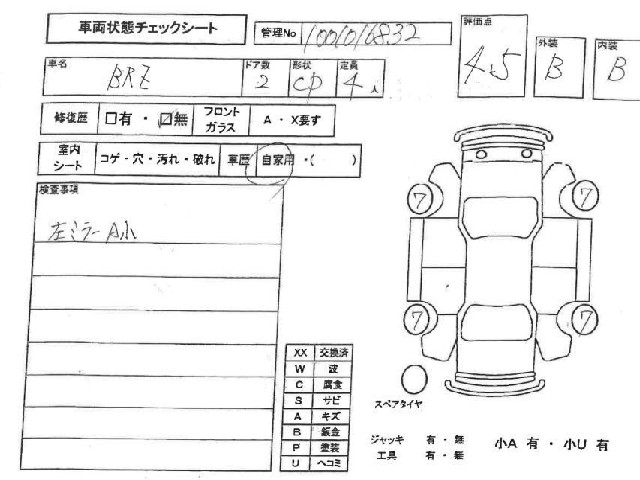 車両状態チェックシート 管理No 1001016832
評価点 4.5 外装 B 内装 B
車名 BRZ ドア数 2 形状 CP 定員 4人
修復歴 □有・☑無 フロントガラス A・X要す
室内シート コゲ・穴・汚れ・破れ 車歴 自家用・( )
検査事項
左ミラーA小
7 7
7 7
XX 交換済
W 波
C 腐食
S サビ
A キズ
B 鈑金
P 塗装
U ヘコミ
スペアタイヤ
ジャッキ 有・無
工具 有・無
小A 有・小U 有